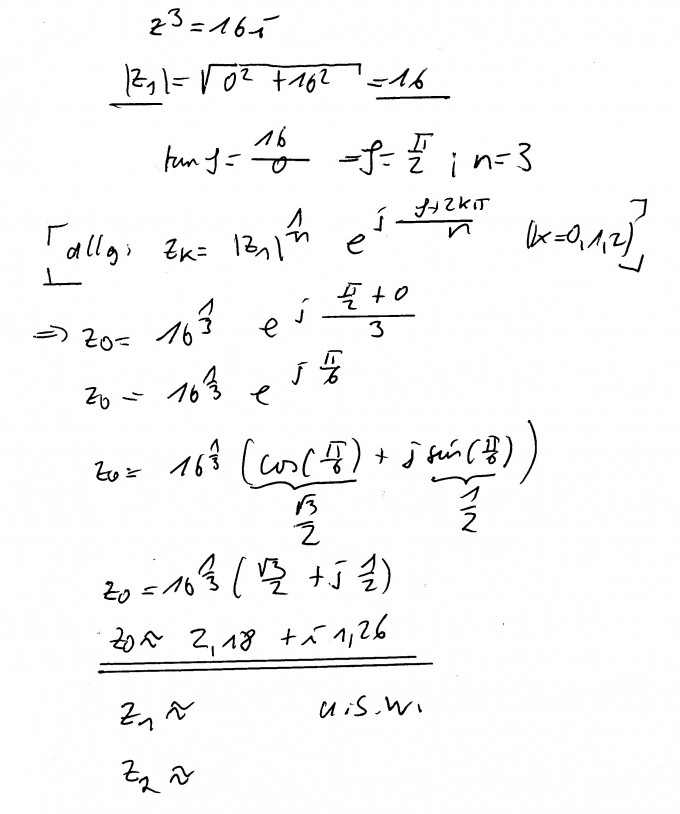 z³ = 16i
|z₁| = √(0² + 16²) = 16
tan φ = 16/0 ⇒ φ = π/2 ; n = 3
allg: z_k = |z₁|^(1/n) e^(j (φ+2kπ)/n) (k=0,1,2)
⇒ z₀ = 16^(1/3) e^(j (π/2 + 0)/3)
z₀ = 16^(1/3) e^(j π/6)
z₀ = 16^(1/3) (cos(π/6) + j sin(π/6))
√3/2 1/2
z₀ = 16^(1/3) (√3/2 + j 1/2)
z₀ ≈ 2,18 + i 1,26
z₁ ≈ u.s.w.
z₂ ≈